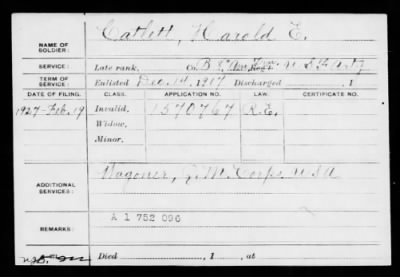 NAME OF SOLDIER: Catlett, Harold E.
SERVICE: Late rank, Co. B
TERM OF SERVICE: Enlisted Dec. 14, 1917 Discharged , 1
DATE OF FILING. CLASS. APPLICATION NO. LAW. CERTIFICATE NO.
1927-Feb. 19 Invalid, 1570767 R.E.
Widow,
Minor,
ADDITIONAL SERVICES: Wagoner, Q.M. Corps. U.S.A
REMARKS: A 1 752 096
Died , 1 , at